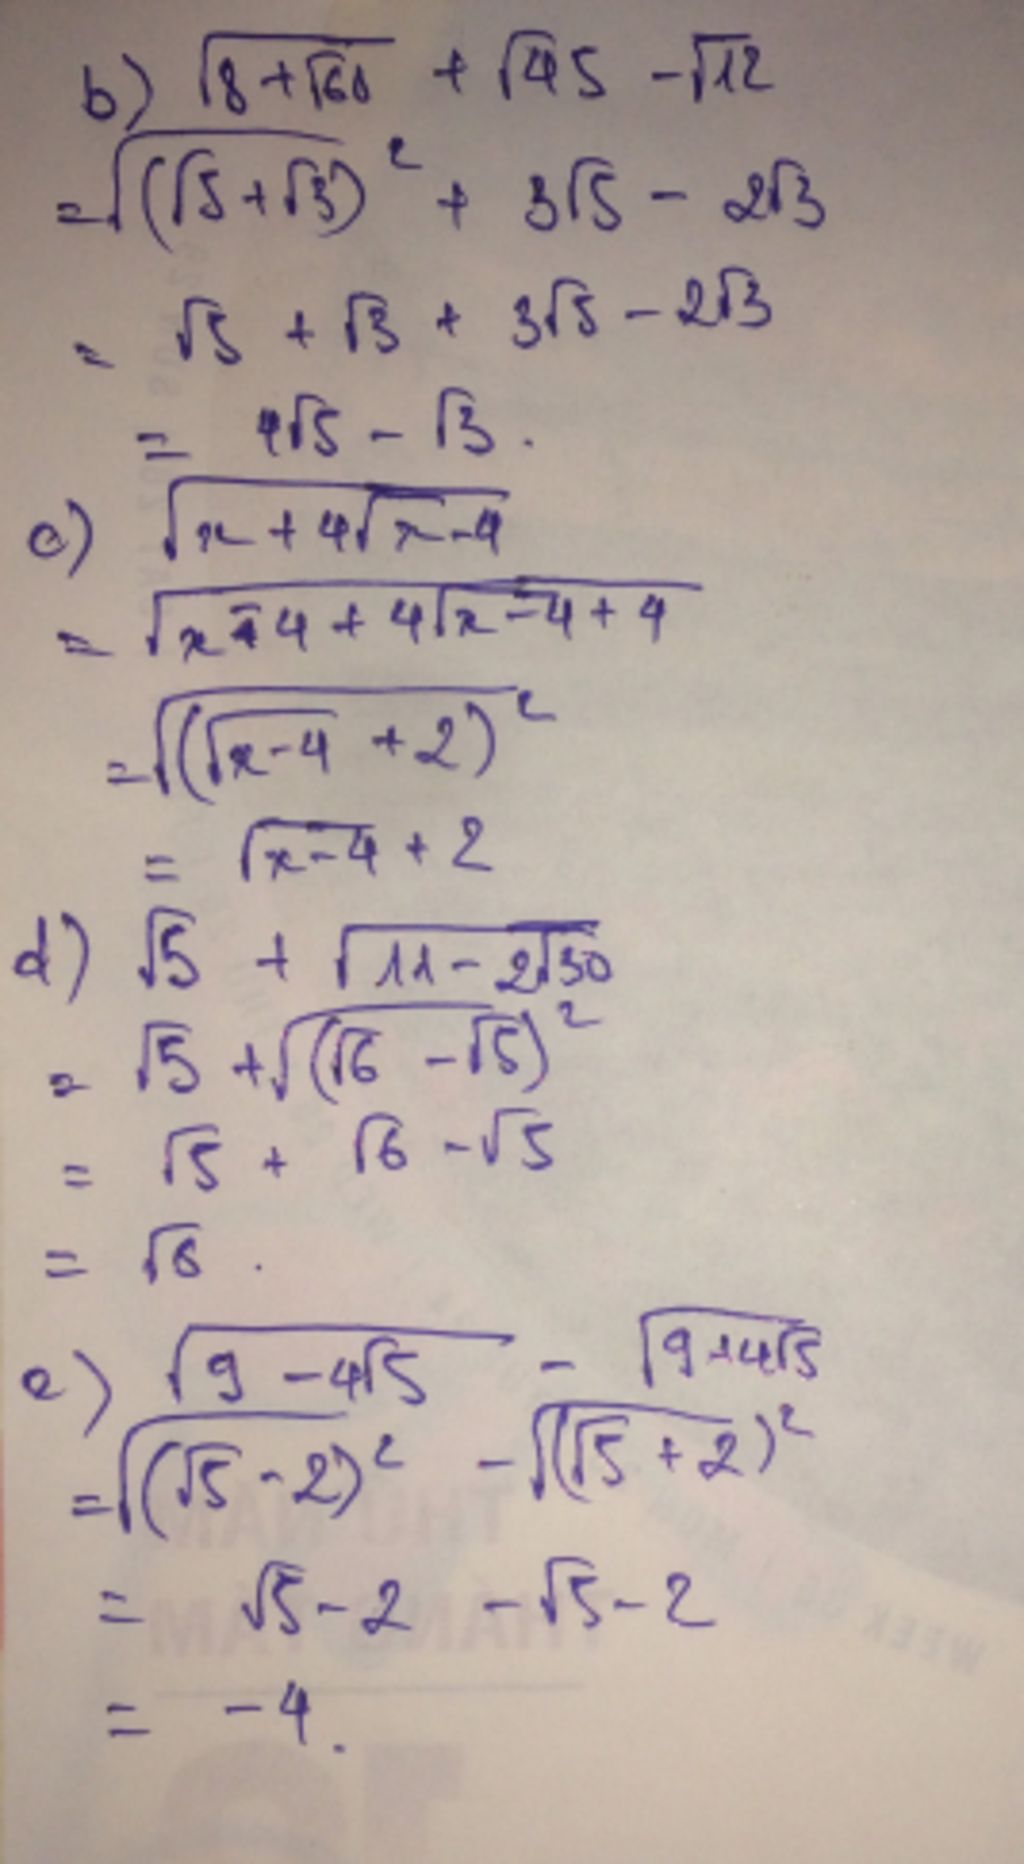 b) √(8+√60) + √45 - √12
= √((√5+√3)²) + 3√5 - 2√3
= √5 + √3 + 3√5 - 2√3
= 4√5 - √3.
c) √(x+4√(x-4))
= √(x-4+4√(x-4)+4)
= √((√(x-4) + 2)²)
= √(x-4) + 2
d) √5 + √(11-2√30)
= √5 + √((√6 - √5)²)
= √5 + √6 - √5
= √6.
e) √(9-4√5) - √(9+4√5)
= √((√5-2)²) - √((√5+2)²)
= √5-2 - √5-2
= -4.
THỨ NĂM
THÁNG TÁM
WEEK